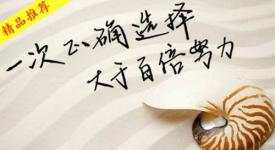 精品推荐
一次正确选择
大于百倍努力